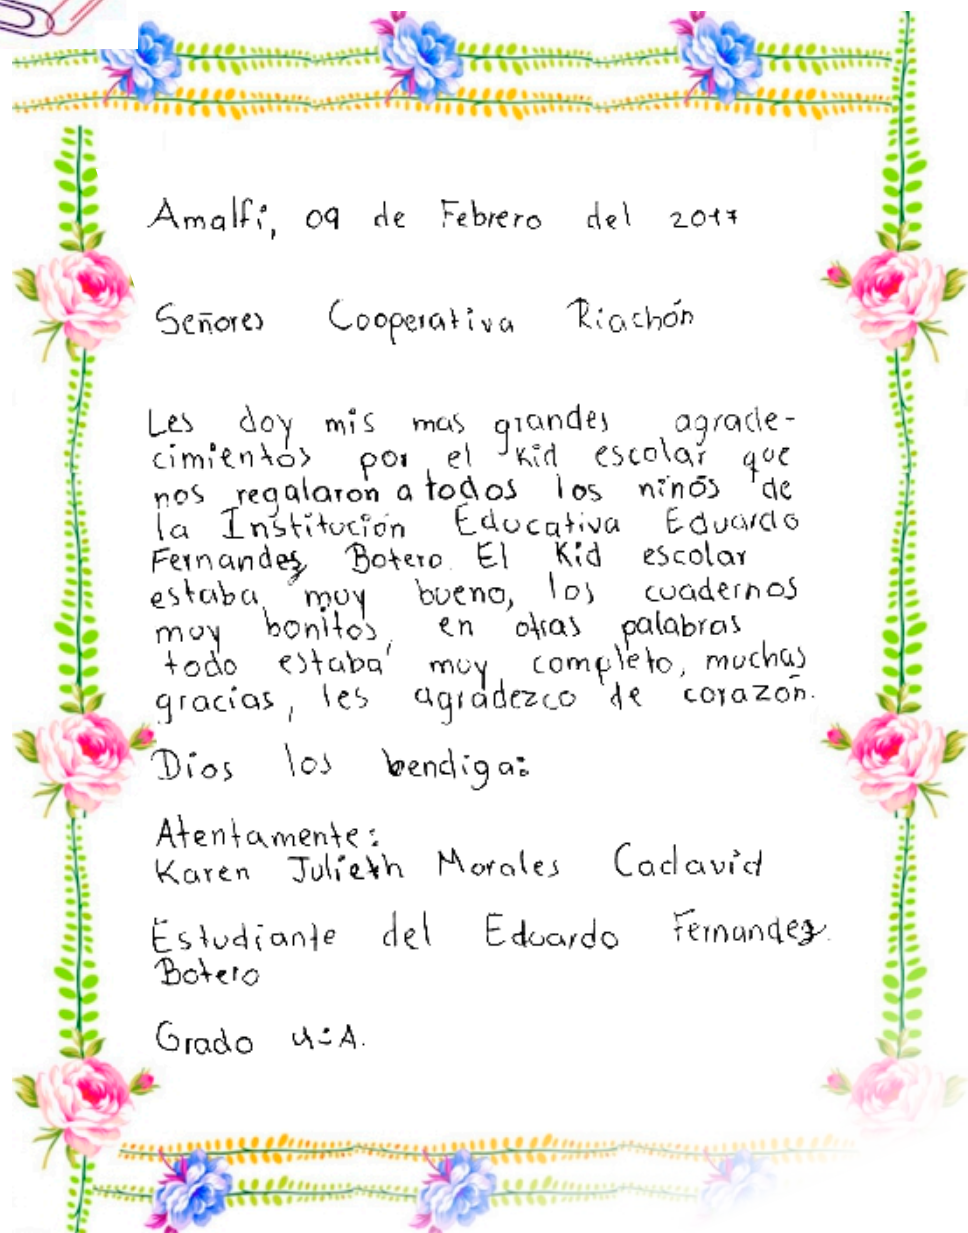 Amalfi, 09 de Febrero del 2017
Señores Cooperativa Riachón
Les doy mis mas grandes agrade-
cimientos por el Kid escolar que
nos regalaron a todos los ninós de
la Institución Educativa Eduardo
Fernandez Botero. El Kid escolar
estaba muy bueno, los cuadernos
muy bonitos, en otras palabras
todo estaba muy completo, muchas
gracias, les agradezco de corazón.
Dios los bendiga:
Atentamente:
Karen Julieth Morales Cadavid
Estudiante del Eduardo Fernandez.
Botero
Grado 4:A.